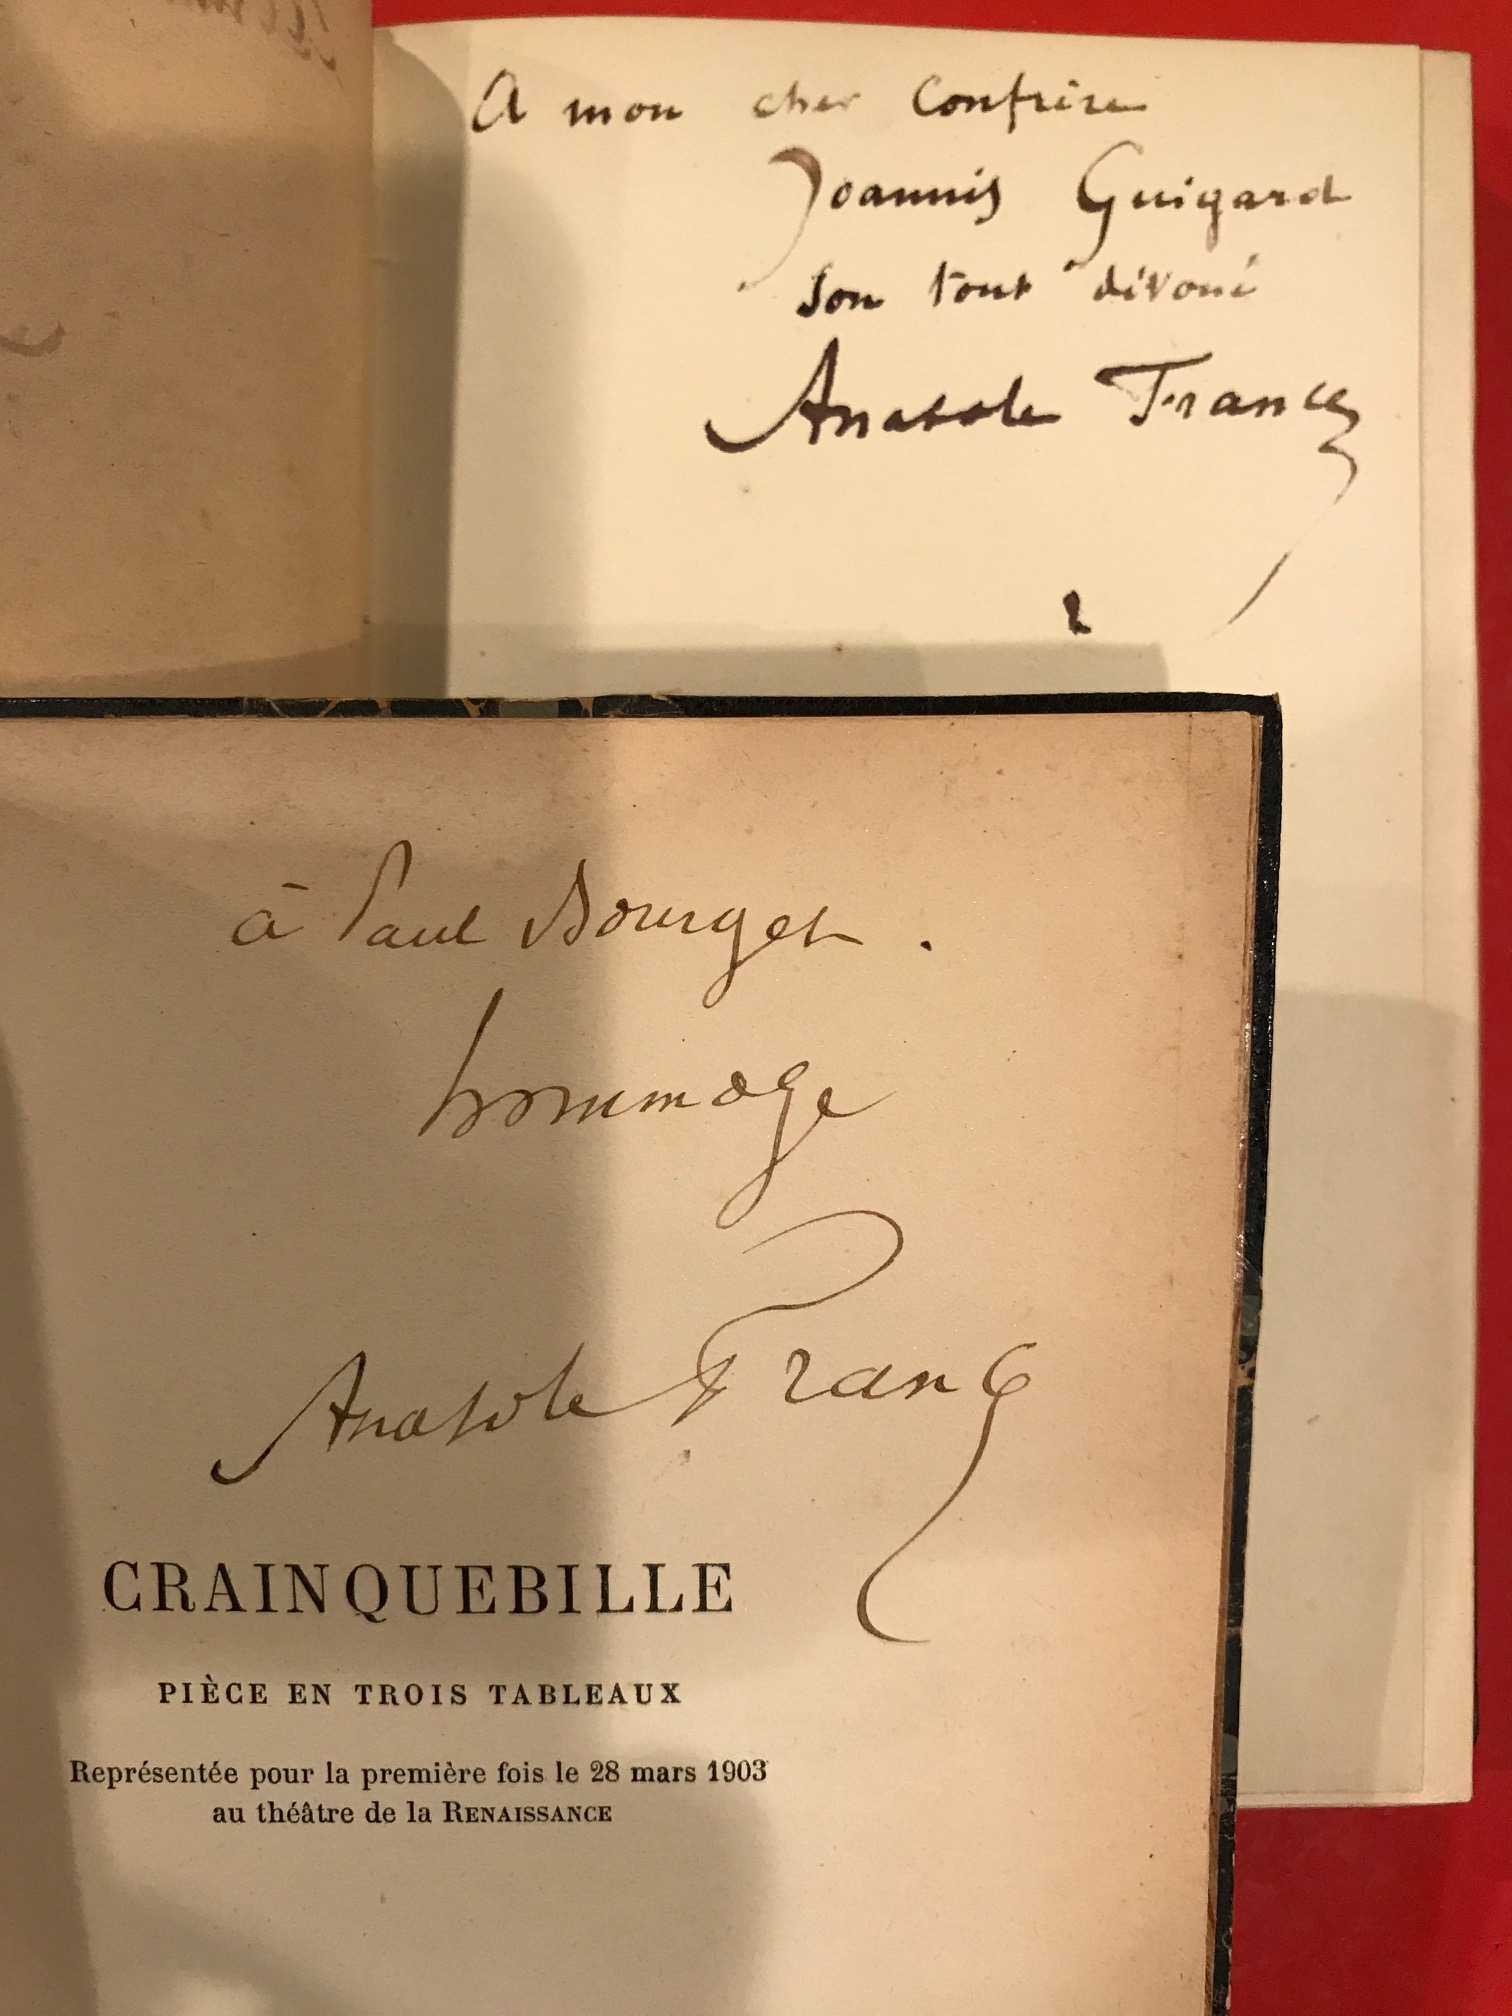 A mon cher Confrère
Joannis Guigard
son tout dévoué
Anatole France
à Paul Bourget.
hommage
Anatole France
CRAINQUEBILLE
PIÈCE EN TROIS TABLEAUX
Représentée pour la première fois le 28 mars 1903
au théâtre de la RENAISSANCE